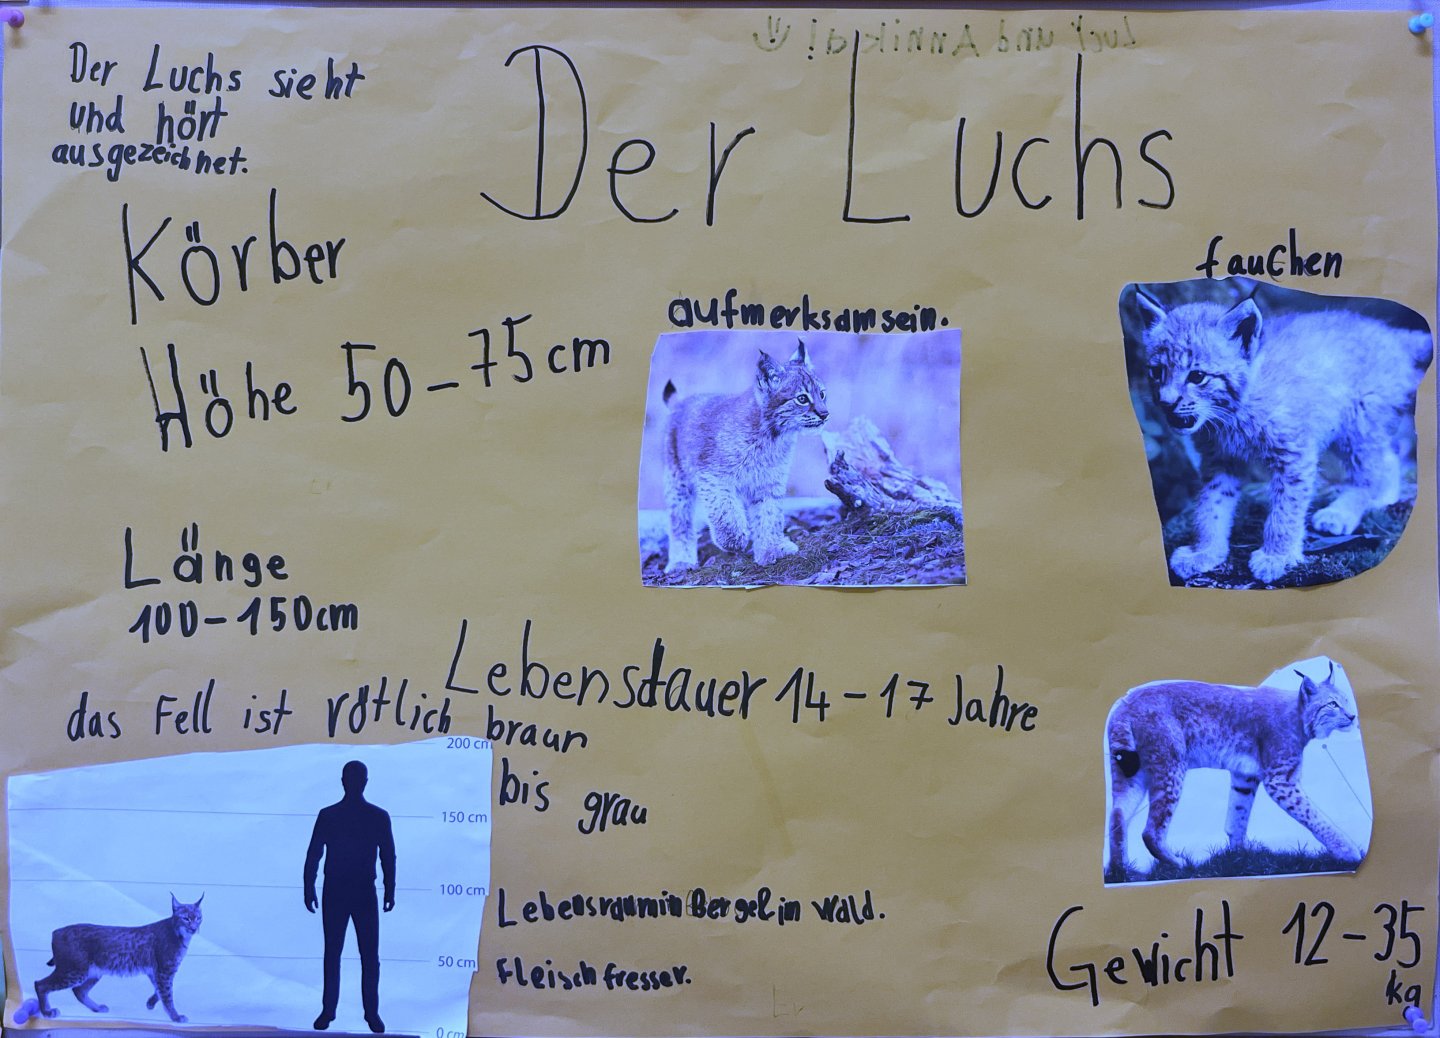 Lucy und Annika!
Der Luchs
Der Luchs sieht
und hört
ausgezeichnet.
Körber
Höhe 50-75cm
fauchen
aufmerksamsein.
Länge
100-150cm
Lebensdauer 14-17 Jahre
das Fell ist rötlich braun
bis grau
200 cm
150 cm
100 cm
50 cm
0 cm
Lebensraum in Bergel im Wald.
Fleischfresser.
Gewicht 12-35
kg